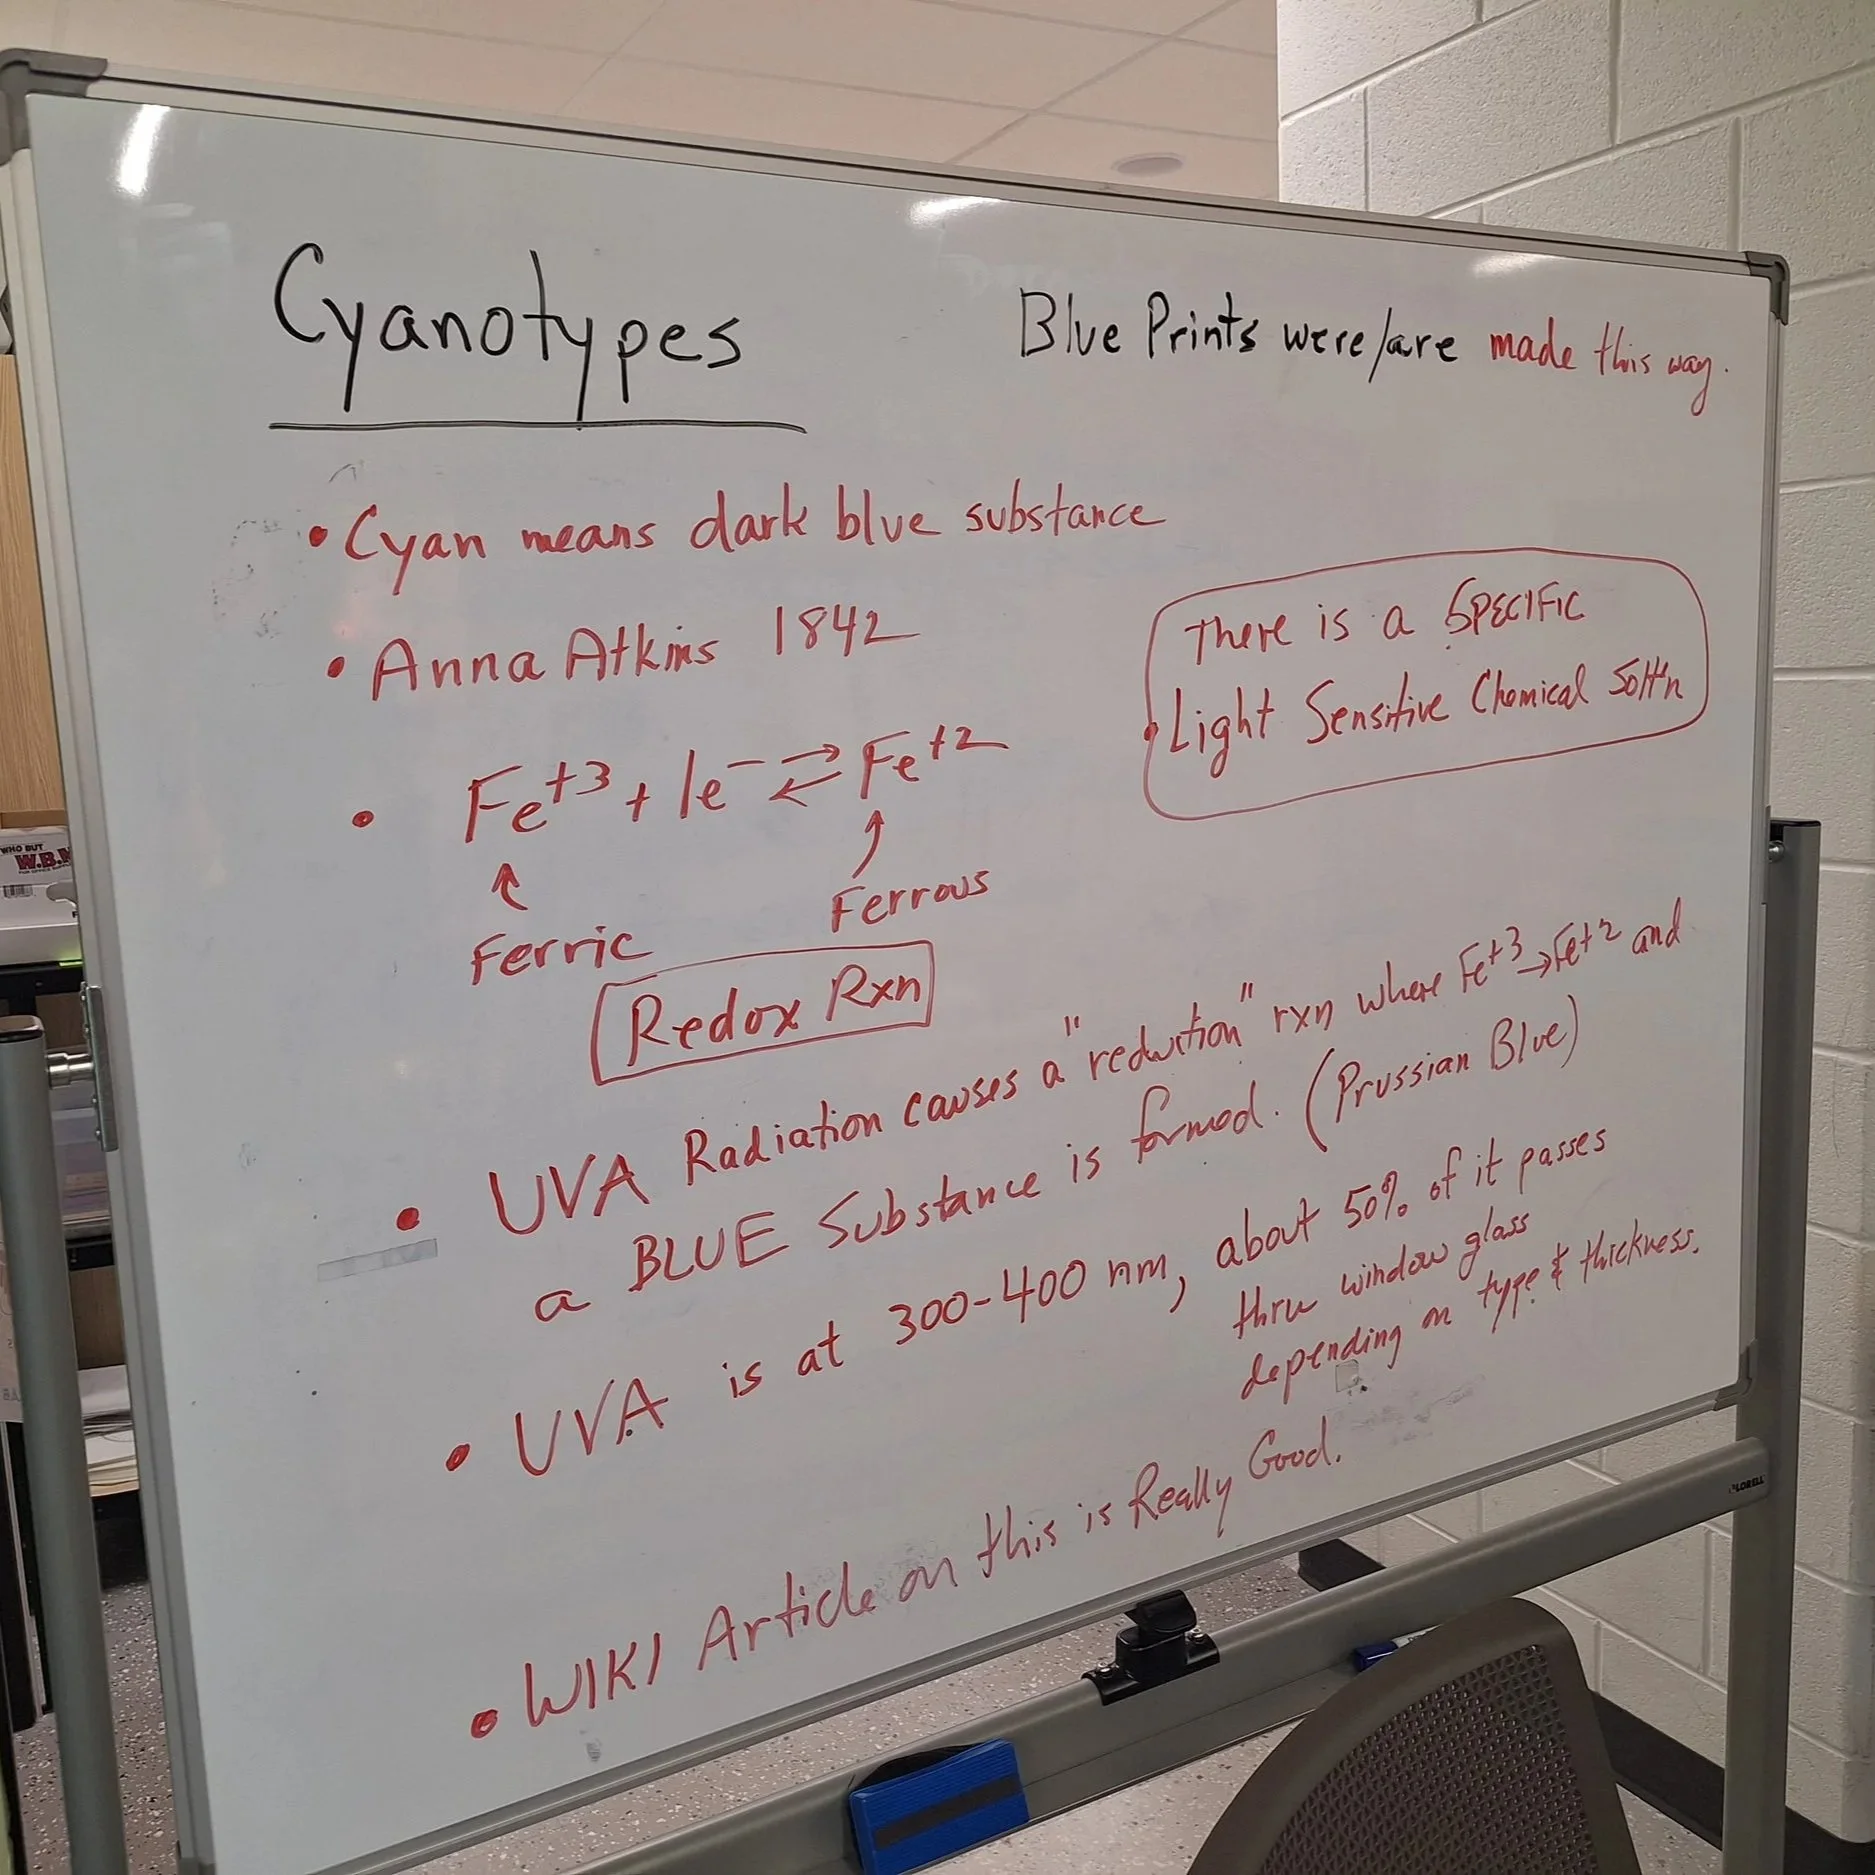 Cyanotypes
Blue Prints were/are made this way.
• Cyan means dark blue substance
• Anna Atkins 1842
There is a SPECIFIC
• Light Sensitive Chemical Solt'n
• Fe+3 + 1e- ⇌ Fe+2
Ferric
Ferrous
Redox Rxn
• UVA Radiation causes a "reduction" rxn where Fe+3→Fe+2 and
a BLUE Substance is formed. (Prussian Blue)
• UVA is at 300-400 nm, about 50% of it passes
thru window glass
depending on type & thickness.
• WIKI Article on this is Really Good.
WHO BUT
W.B.
LORELL